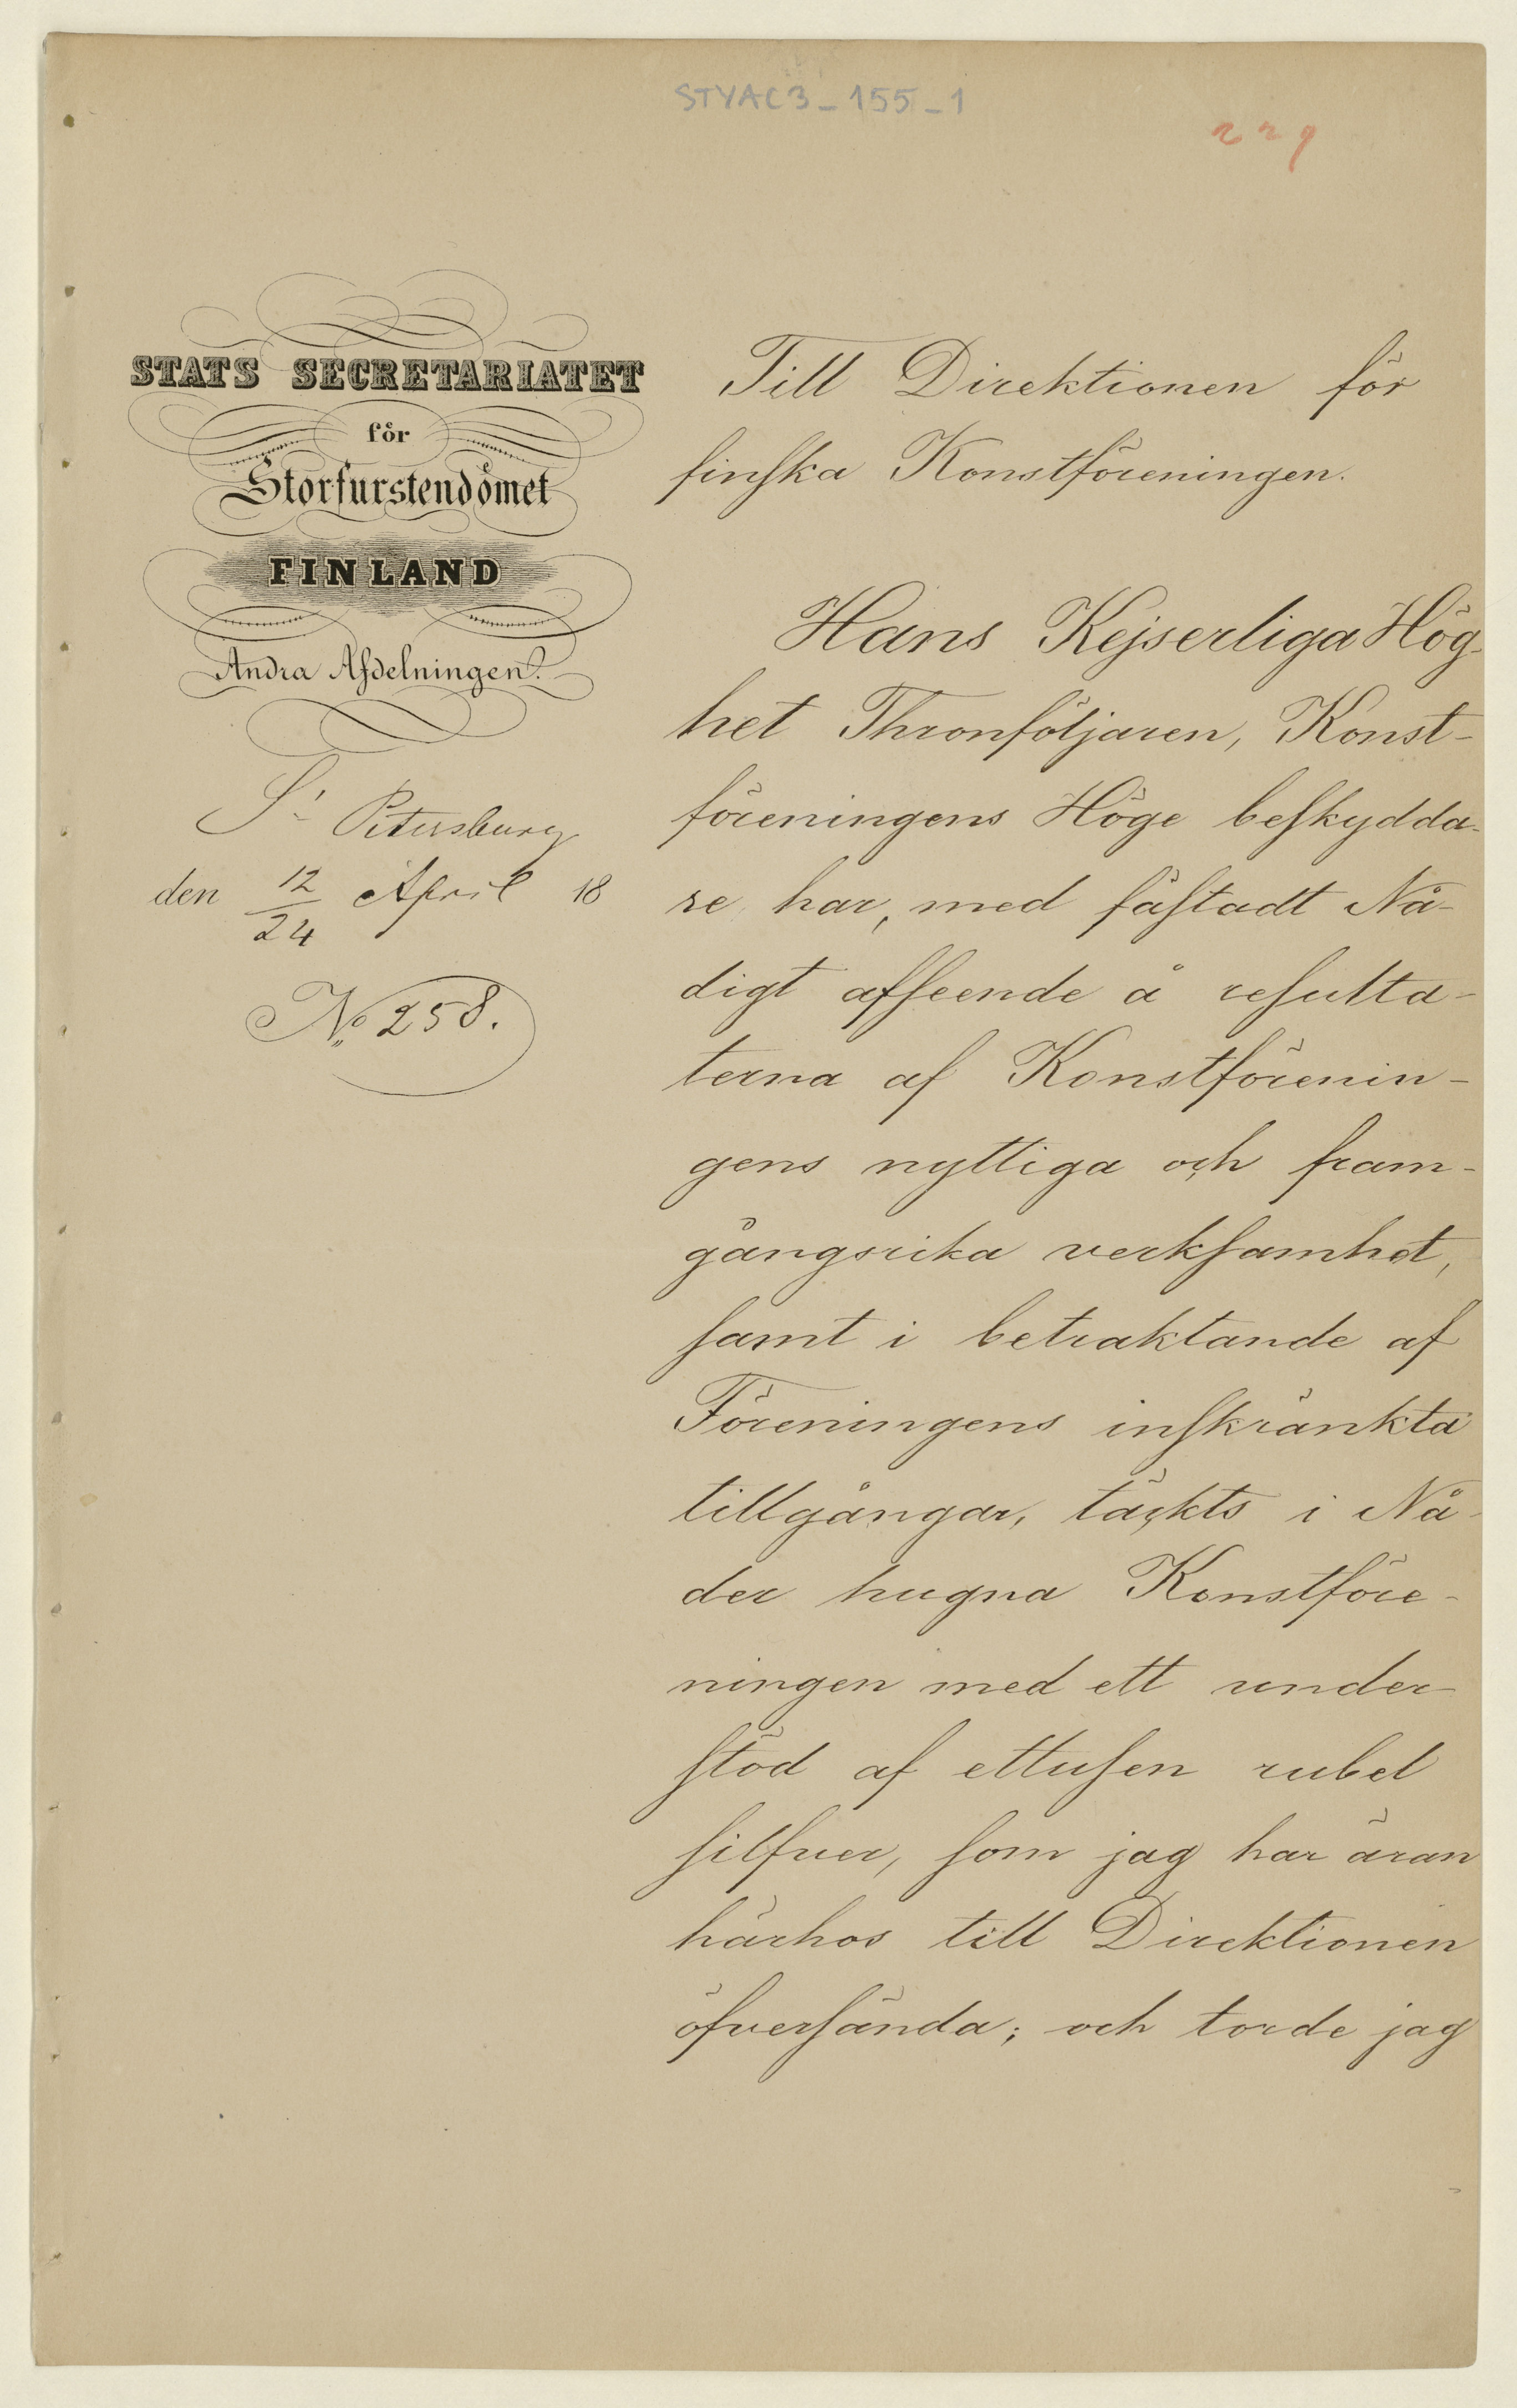 STYAC3_155_1
229
STATS SECRETARIATET
för
Storfurstendömet
FINLAND
Andra Afdelningen.
St Petersburg
den 12/24 April 18
No 258.
Till Direktionen för
finska Konstföreningen.
Hans Kejserliga Hög-
het Thronföljaren, Konst-
föreningens Höge beskydda-
re har, med fästadt Nå-
digt afseende å resulta-
terna af Konstförenin-
gens nyttiga och fram-
gångsrika verksamhet,
samt i betraktande af
Föreningens inskränkta
tillgångar, täckts i Nå-
der hugna Konstföre-
ningen med ett under-
stöd af ettusen rubel
silfver, som jag har äran
härhos till Direktionen
öfversända; och torde jag